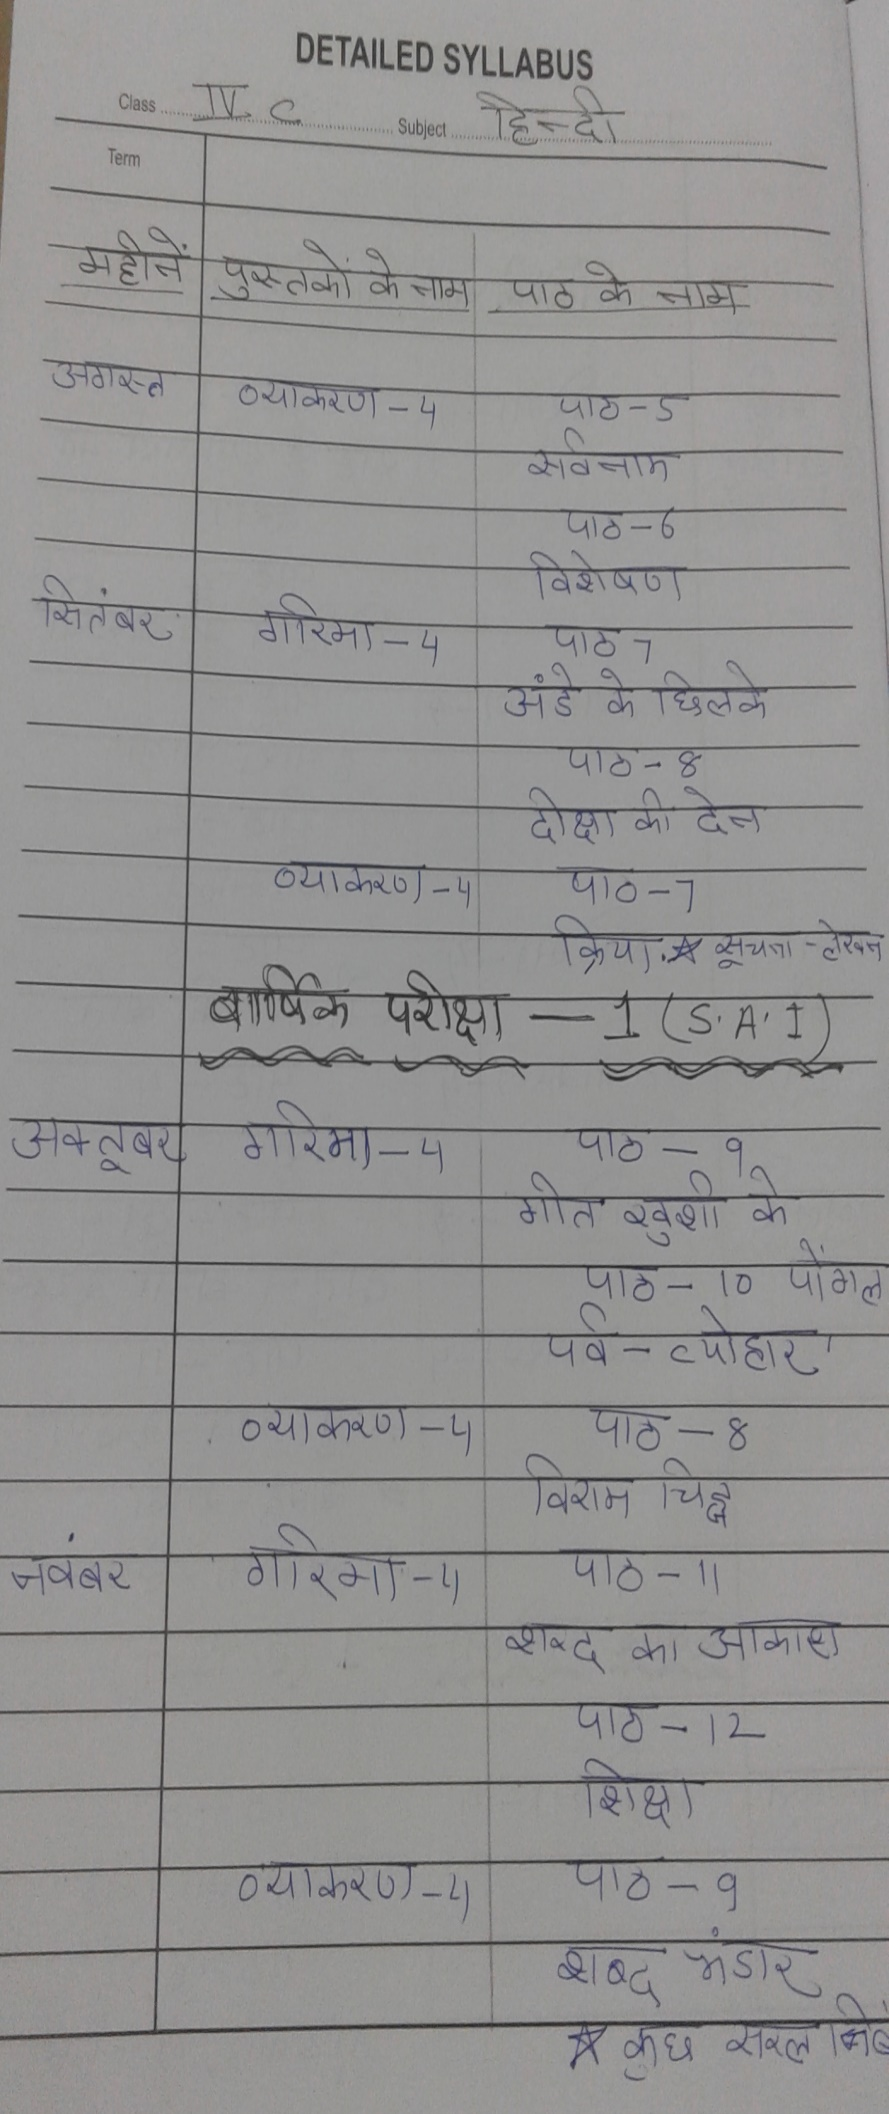 DETAILED SYLLABUS
Class IV C Subject हिन्दी
Term
महीनें पुस्तकों के नाम पाठ के नाम
अगस्त व्याकरण - 4 पाठ - 5
सर्वनाम
पाठ - 6
विशेषण
सितंबर गरिमा - 4 पाठ 7
अंडे के छिलके
पाठ - 8
दीक्षा की देन
व्याकरण - 4 पाठ - 7
क्रिया. ☆ सूचना - लेखन
बार्षिक परीक्षा — 1 (S.A.I)
अक्तूबर गरिमा - 4 पाठ - 9
गीत खुशी के
पाठ - 10 पोंगल
पर्व - त्योहार
व्याकरण - 4 पाठ - 8
विराम चिह्न
नवंबर गरिमा - 4 पाठ - 11
शब्द का आकाश
पाठ - 12
शिक्षा
व्याकरण - 4 पाठ - 9
शब्द भंडार
☆ कुछ सरल